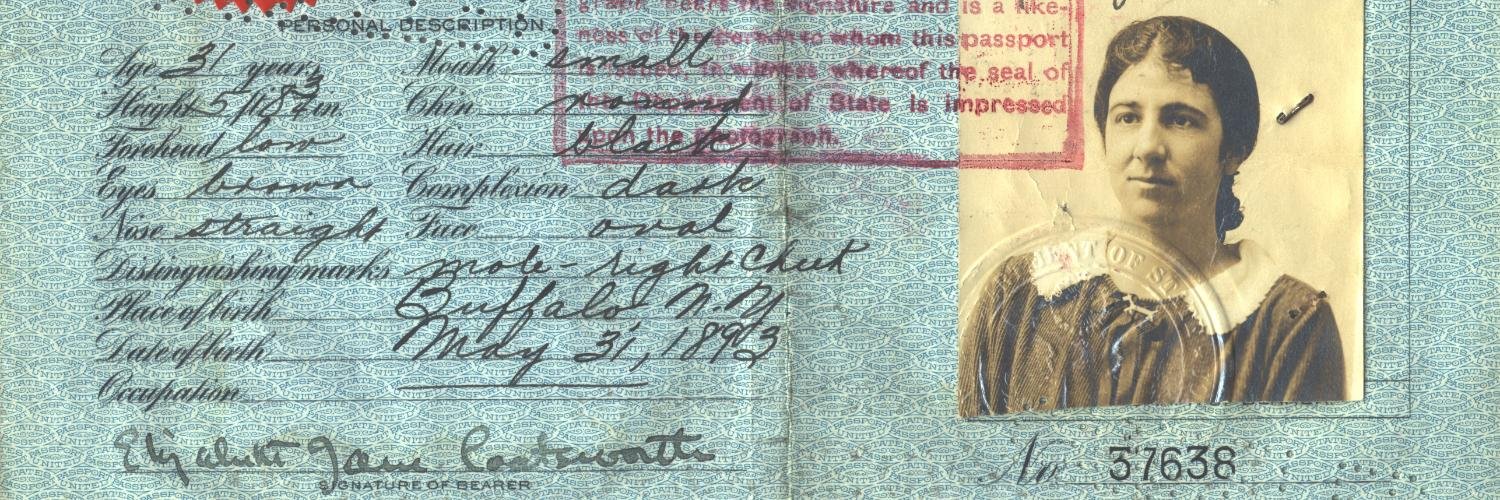 PERSONAL DESCRIPTION
Age 31 years Mouth small
Height 5 ft 8 in Chin round
Forehead low Hair black
Eyes brown Complexion dark
Nose straight Face oval
Distinguishing marks mole - right cheek
Place of birth Buffalo N.Y
Date of birth May 31, 1893
Occupation
Elizabeth Jane Coatsworth
SIGNATURE OF BEARER
graph bears the signature and is a like-
ness of the person to whom this passport
is issued. In witness whereof the seal of
the Department of State is impressed
upon the photograph.
MENT OF ST
No 37638